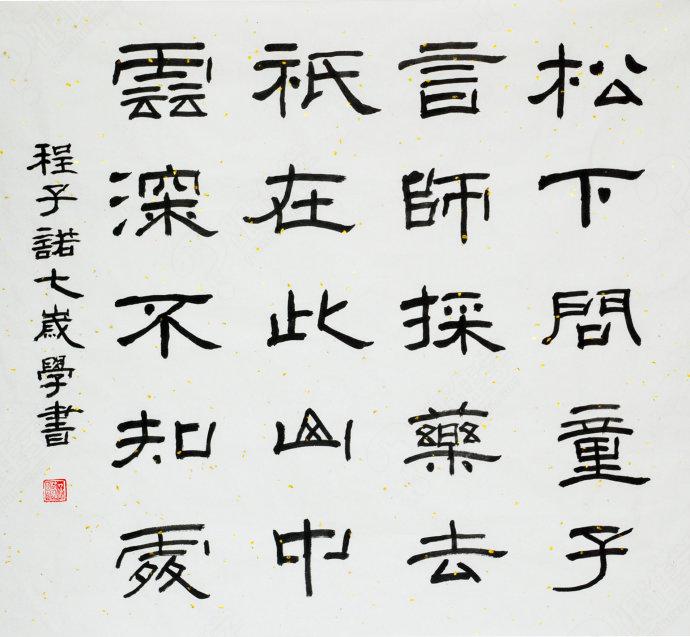 松下問童子
言師採藥去
祇在此山中
雲深不知處
程子諾七歲學書